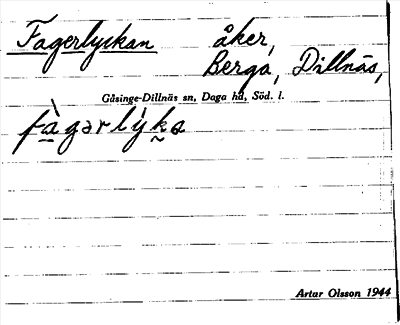 Fagerlyckan åker,
Berga, Dillnäs,
Gåsinge-Dillnäs sn, Daga hd, Söd. l.
fàgərlýka
Artur Olsson 1944